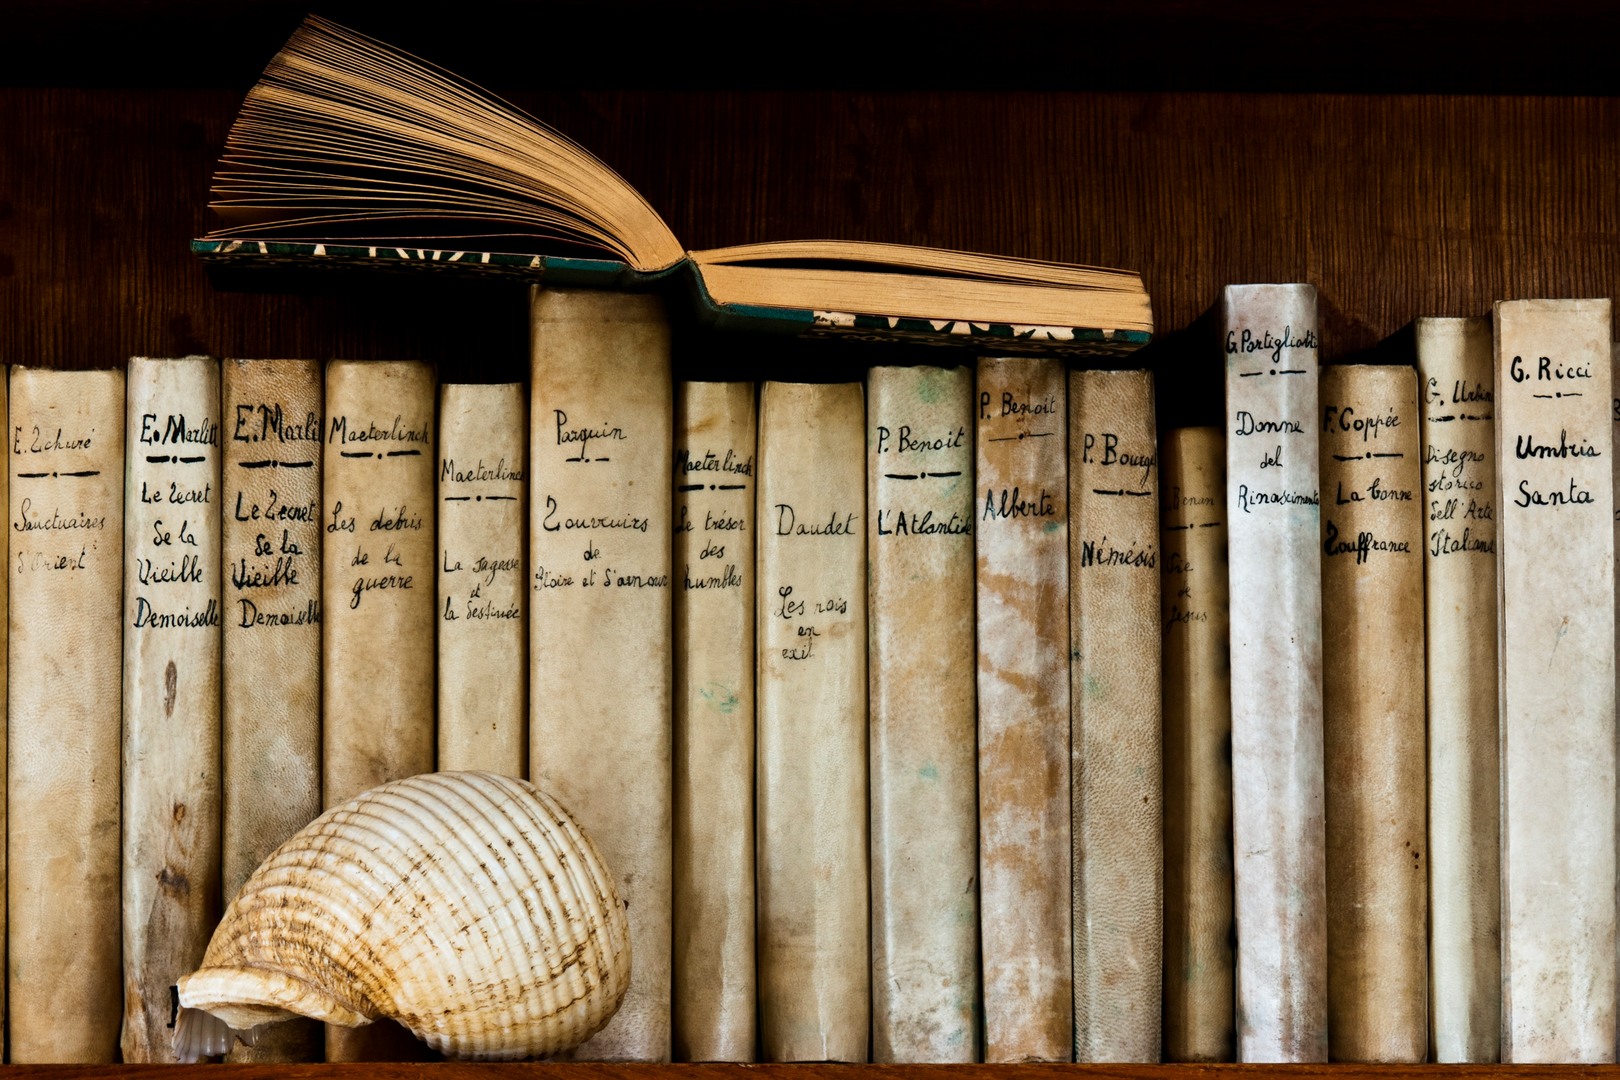 E. Schuré
Sanctuaires
d'Orient
E. Marlitt
Le Secret
de la
Vieille
Demoiselle
E. Marli
Le Secret
de la
Vieille
Demoiselle
Maeterlinck
Les débris
de la
guerre
Maeterlinck
La sagesse
et
la destinée
Parquin
Souvenirs
de
Gloire et d'amour
Maeterlinck
Le trésor
des
humbles
Daudet
Les rois
en
exil
P. Benoit
L'Atlantide
P. Benoit
Alberte
P. Bourge
Némésis
Renan
Vie
de
Jésus
G. Portigliotti
Donne
del
Rinascimento
F. Coppée
La bonne
Souffrance
G. Urbin
Disegno
storico
dell'Arte
Italiana
G. Ricci
Umbria
Santa